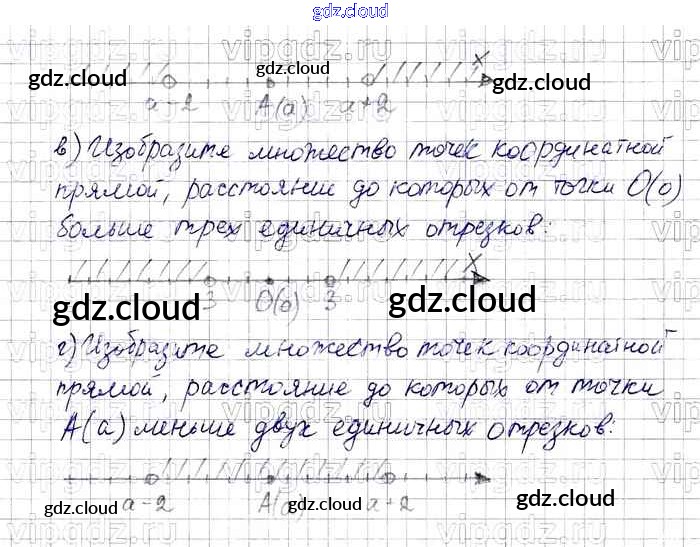 gdz.cloud
gdz.cloud gdz.cloud gdz.cloud x
a-2 A(a) a+2
в) Изобразите множество точек координатной
прямой, расстояние до которых от точки O(o)
больше трех единичных отрезков:
x
3 O(o) 3
gdz.cloud gdz.cloud
г) Изобразите множество точек координатной
прямой, расстояние до которых от точки
A(a) меньше двух единичных отрезков:
x
a-2 A(a) a+2
gdz.cloud gdz.cloud gdz.cloud